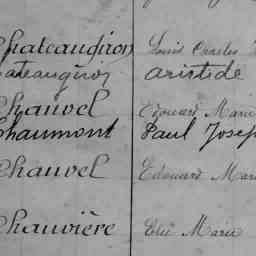 Chateaugiron Louis Charles
ateaugiron aristide
Chauvel Edouard Marie
Chaumont Paul Josep
Chauvel Edouard Mar
Chauvière Elie Marie